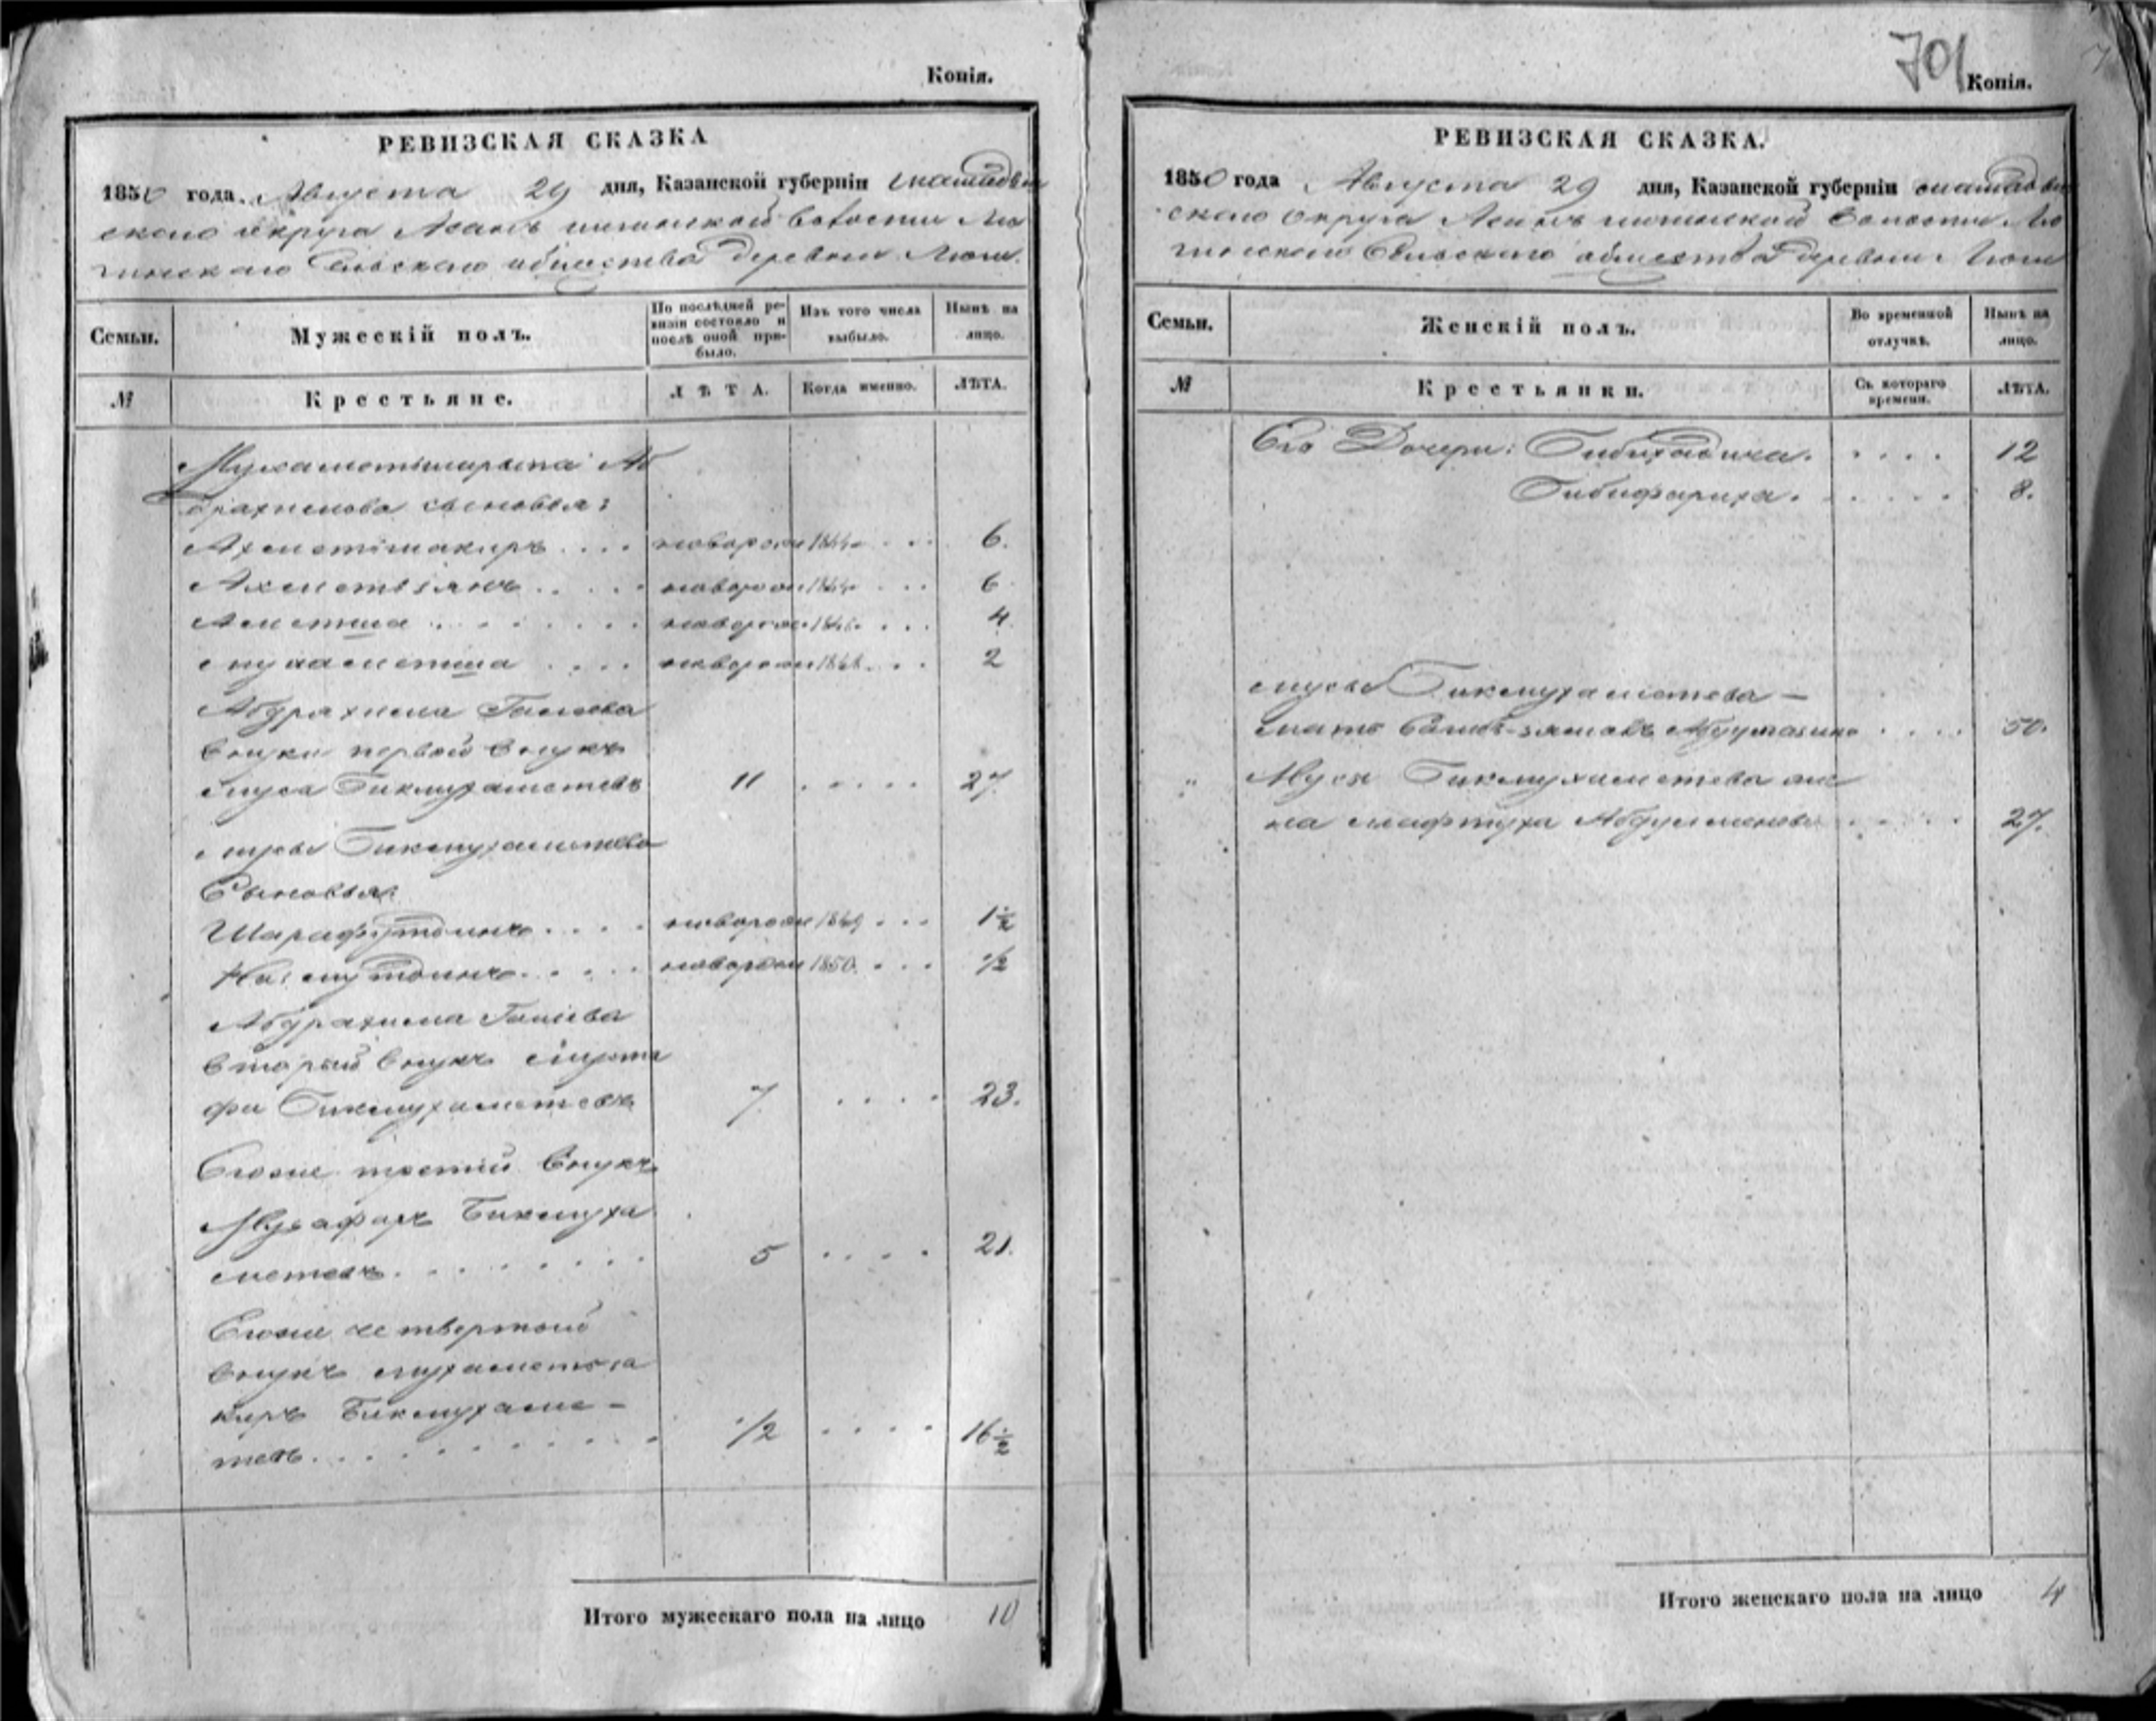 Копія.
РЕВИЗСКАЯ СКАЗКА
1850 года Августа 29 дня, Казанской губерніи Мамадыш
скаго округа волости
Сельскаго общества деревни
Семьи.
Мужескій полъ.
По послѣдней ре-
визіи состояло и
послѣ оной при-
было.
Изъ того числа
выбыло.
Нынѣ на
лицо.
№
Крестьяне.
ЛѢТА.
Когда именно.
ЛѢТА.
Мухаметшарыпа Аб
драхимова сыновья:
Ахметшакиръ . . . . новорож 1844 . . . 6.
Ахметзянъ . . . . . новорож 1844 . . . 6
Аметша . . . . . . . новорож . . . 4
Мухаметша . . . . новорож 1848 . . . 2
Абдрахима
внуки первой внукъ
Муса Бикмухаметевъ 11 . . . . . 27.
Мусы Бикмухаметева
Сыновья:
Шарафутдинъ . . . . новорож 1849 . . . 1 1/2
. . . . . новорож 1850. . . . 1/2
Абдрахима
вторый внукъ Мурта
фа Бикмухаметевъ 7 . . . . 23.
Егоже третій внукъ
Музафаръ Бикмуха
метевъ . . . . . . . 5 . . . . 21.
Егоже четвертой
внукъ Мухаметза
киръ Бикмухаме-
тевъ . . . . . . . . . 1/2 . . . . 16 1/2
Итого мужескаго пола на лицо 10
701
Копія.
РЕВИЗСКАЯ СКАЗКА.
1850 года Августа 29 дня, Казанской губерніи Мамадыш
скаго округа волости
Сельскаго общества деревни
Семьи.
Женскій полъ.
Во временной
отлучкѣ.
Нынѣ на
лицо.
№
Крестьянки.
Съ котораго
времени.
ЛѢТА.
Его Дочери: Бибихадича. . . . . 12
Бибифариха. . . . . . 8.
Мусы Бикмухаметева —
мать . . . . 50.
" Мусы Бикмухаметева же
на Мафтуха . . . . 27.
Итого женскаго пола на лицо 4